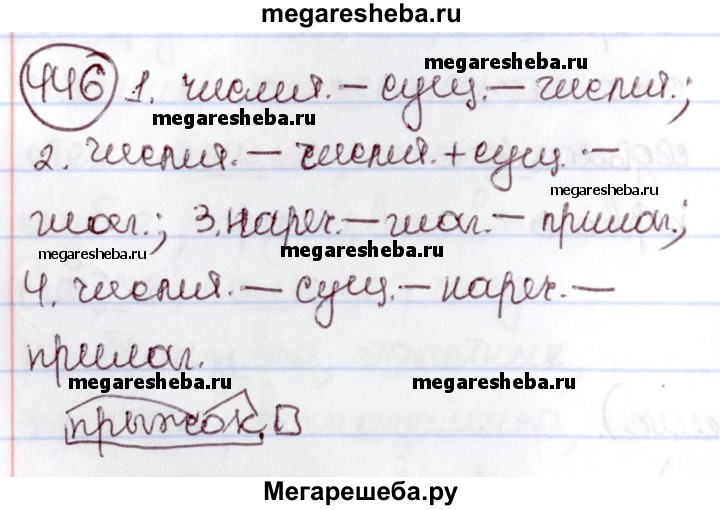 megaresheba.ru
446 1. числит. – сущ. – числит.;
megaresheba.ru
megaresheba.ru
2. числит. – числит. + сущ. –
megaresheba.ru
глаг.; 3. нареч. – глаг. – прилаг.;
megaresheba.ru
megaresheba.ru
4. числит. – сущ. – нареч. –
прилаг.
megaresheba.ru
megaresheba.ru
прыжок
Мегарешеба.ру